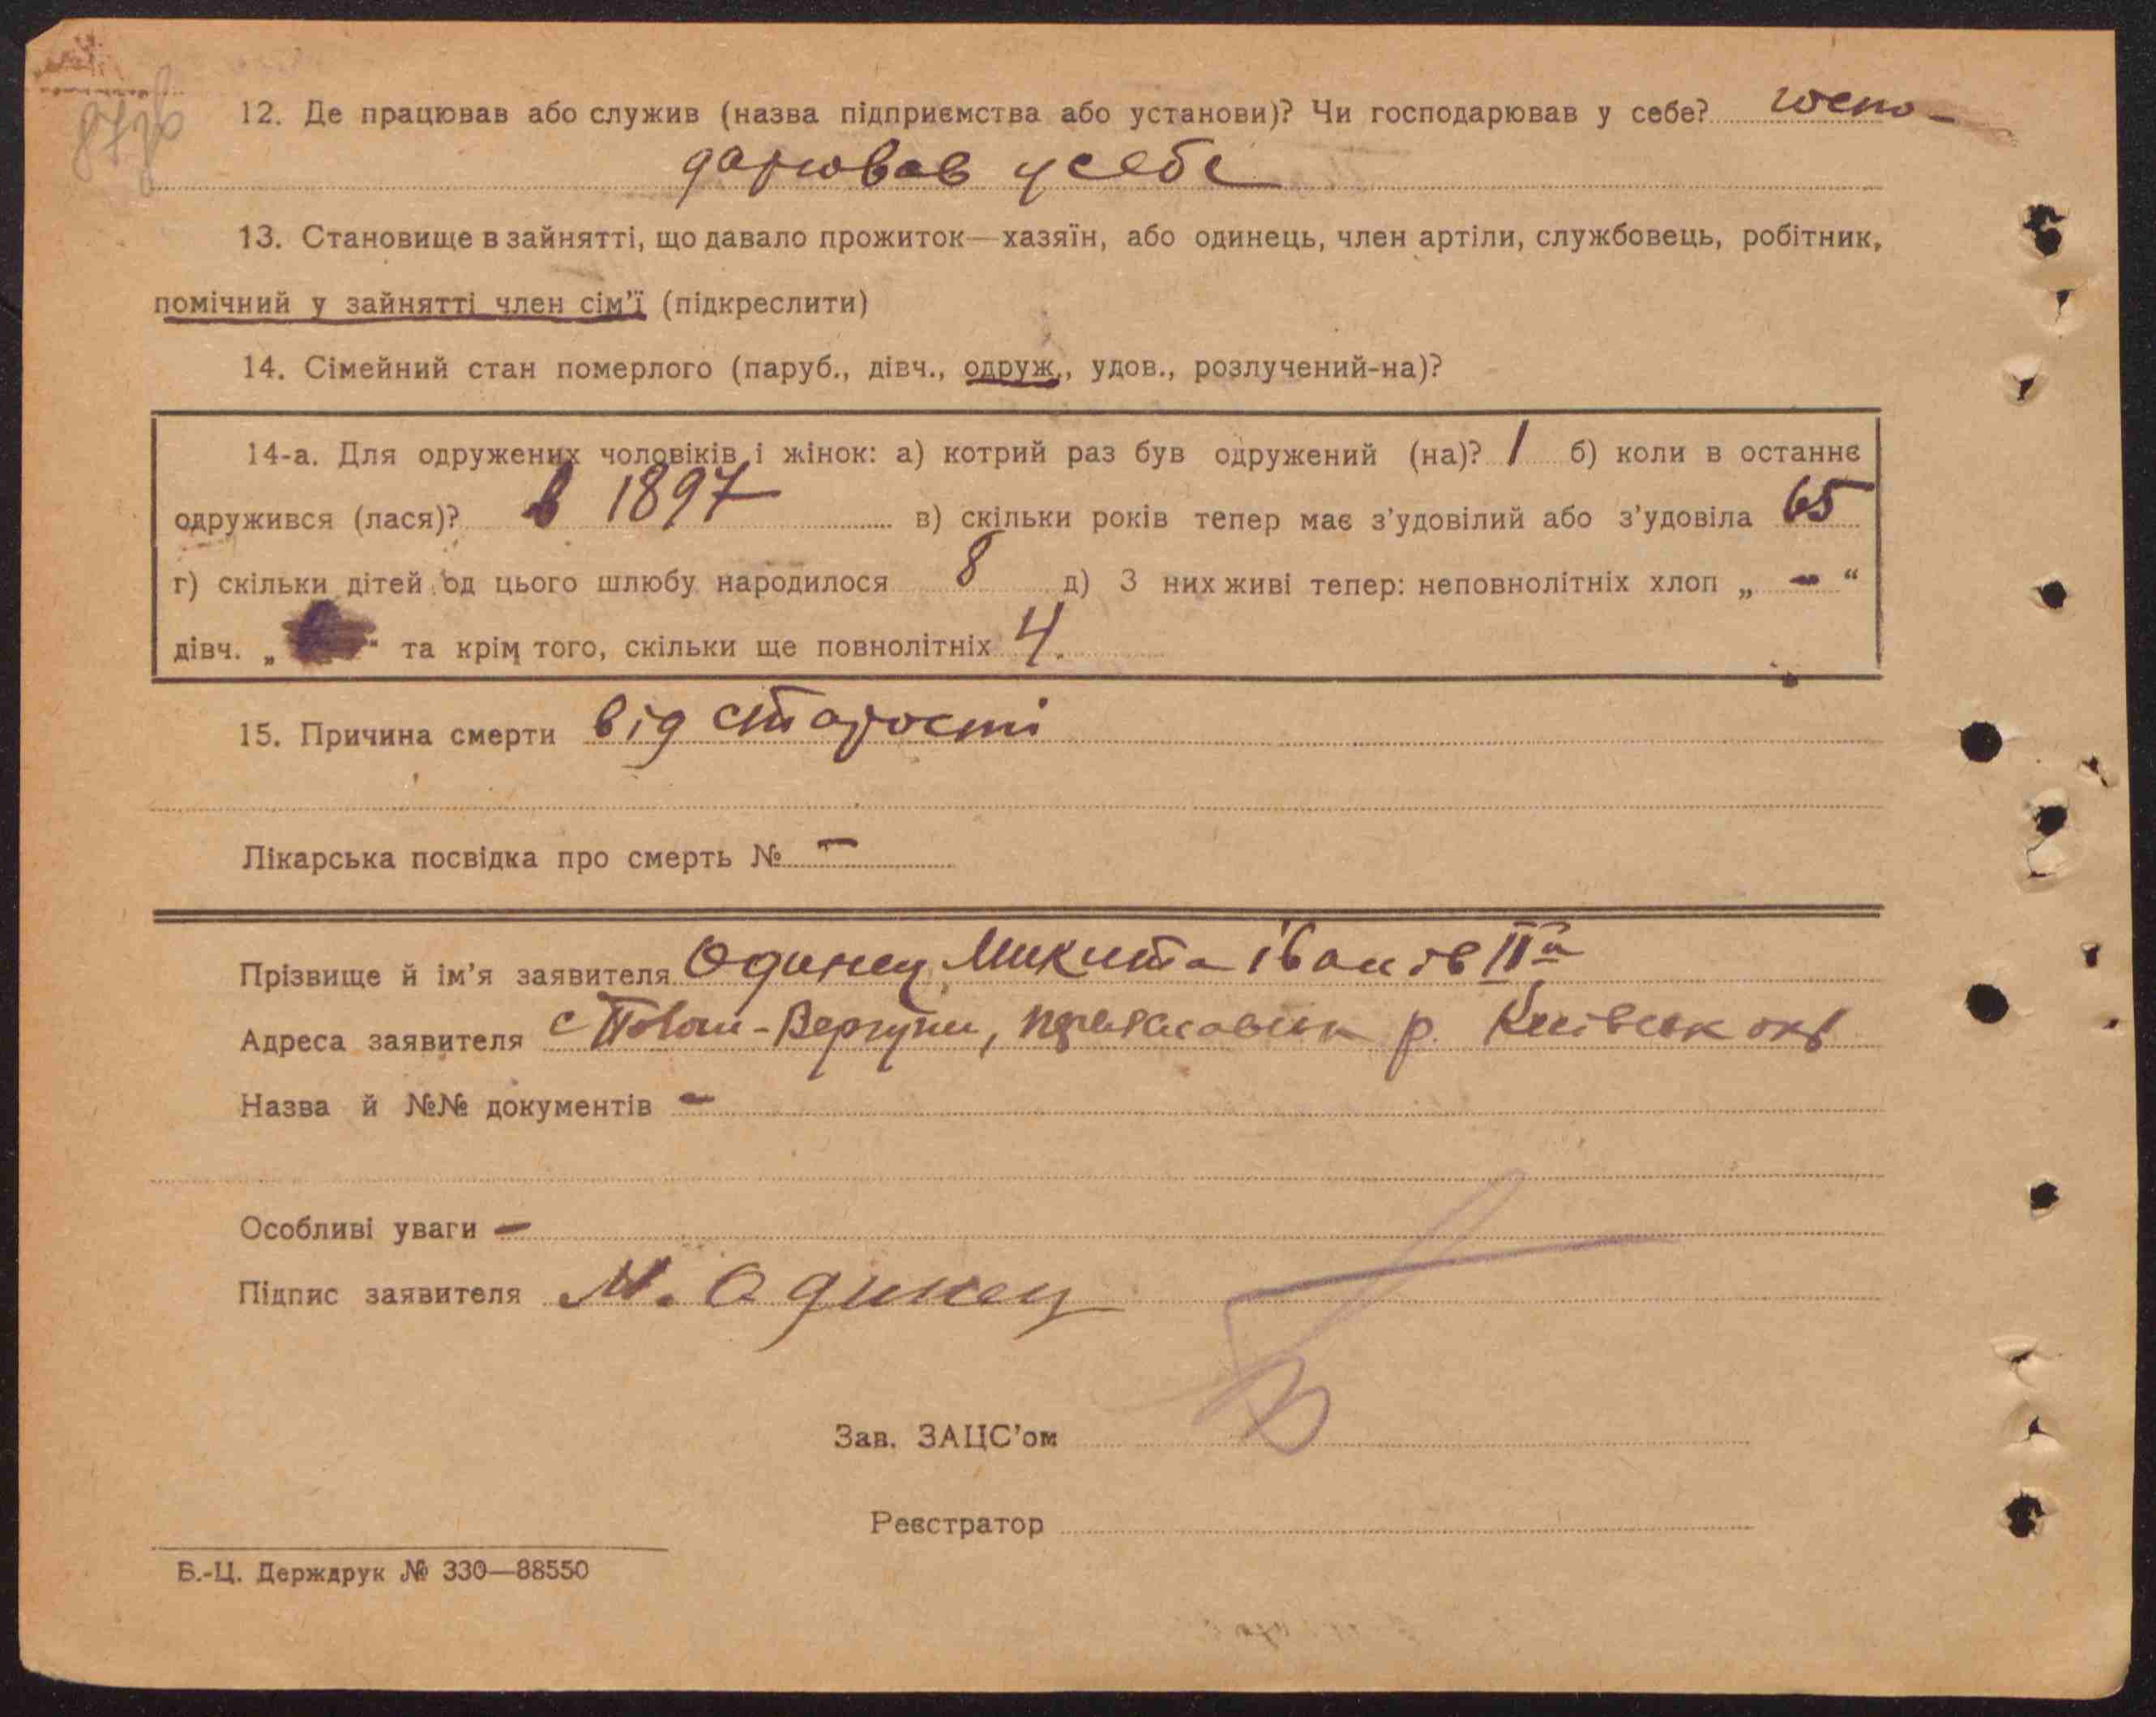 87зв
12. Де працював або служив (назва підприємства або установи)? Чи господарював у себе? госпо-
дарював у себе
13. Становище в зайнятті, що давало прожиток—хазяїн, або одинець, член артіли, службовець, робітник,
помічний у зайнятті член сім'ї (підкреслити)
14. Сімейний стан померлого (паруб., дівч., одруж., удов., розлучений-на)?
14-а. Для одружених чоловіків і жінок: а) котрий раз був одружений (на)? 1 б) коли в останнє
одружився (лася)? в 1897 в) скільки років тепер має з'удовілий або з'удовіла 65
г) скільки дітей од цього шлюбу народилося 8 д) З них живі тепер: неповнолітніх хлоп „ — “
дівч. „ “ та крім того, скільки ще повнолітніх 4.
15. Причина смерти від старости
Лікарська посвідка про смерть № —
Прізвище й ім'я заявителя Одинец Микита Іванів ІІй
Адреса заявителя с -Вергуни, Переяславськ р. Київськ окр
Назва й №№ документів —
Особливі уваги —
Підпис заявителя М. Одинец
Зав. ЗАЦС'ом
Реєстратор
Б.-Ц. Держдрук № 330—88550